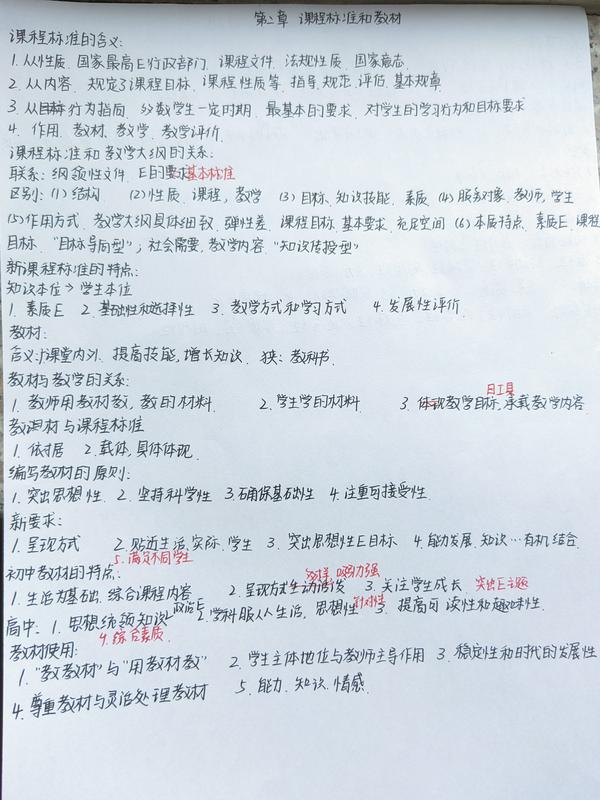 第二章 课程标准和教材
课程标准的含义:
1. 从性质、国家最高E行政部门、课程文件、法规性质、国家意志
2. 从内容、规定了课程目标、课程性质等、指导、规范、评估、基本规章
3. 从行为指向、绝大多数学生一定时期、最基本的要求、对学生的学习行为和目标要求
4. 作用、教材、教学、教学评价
课程标准和教学大纲的关系:
联系: 纲领性文件、E的要求 基本标准
区别: (1) 结构 (2) 性质、课程, 教学 (3) 目标、知识技能、素质 (4) 服务对象、教师, 学生
(5) 作用方式、教学大纲具体细致、弹性差、课程目标、基本要求、充足空间 (6) 本质特点、素质E、课程
目标、"目标导向型"; 社会需要, 教学内容、"知识传授型"
新课程标准的特点:
知识本位→学生本位
1. 素质E 2. 基础性和选择性 3. 教学方式和学习方式 4. 发展性评价
教材:
含义: 广课堂内外、提高技能, 增长知识、狭: 教科书
教材与教学的关系:
日工具
1. 教师用教材教, 教的材料 2. 学生学的材料 3. 体现教学目标, 承载教学内容
教材与课程标准
1. 依据 2. 载体, 具体体现
编写教材的原则:
1. 突出思想性 2. 坚持科学性 3. 确保基础性 4. 注重可接受性
新要求:
1. 呈现方式 2. 贴近生活, 实际、学生 3. 突出思想性E目标 4. 能力发展、知识…有机结合
5. 满足不同学生
初中教材的特点:
多样 吸引力强
1. 生活为基础、综合课程内容 2. 呈现方式生动活泼 3. 关注学生成长 突出E主题
高中: 1. 思想统领知识 政治E 2. 学科服从人生活, 思想性 针对性 3. 提高可读性和趣味性
4. 综合素质
教材使用:
1. "教教材"与"用教材教" 2. 学生主体地位与教师主导作用 3. 稳定性和时代的发展性
4. 尊重教材与灵活处理教材 5. 能力、知识、情感